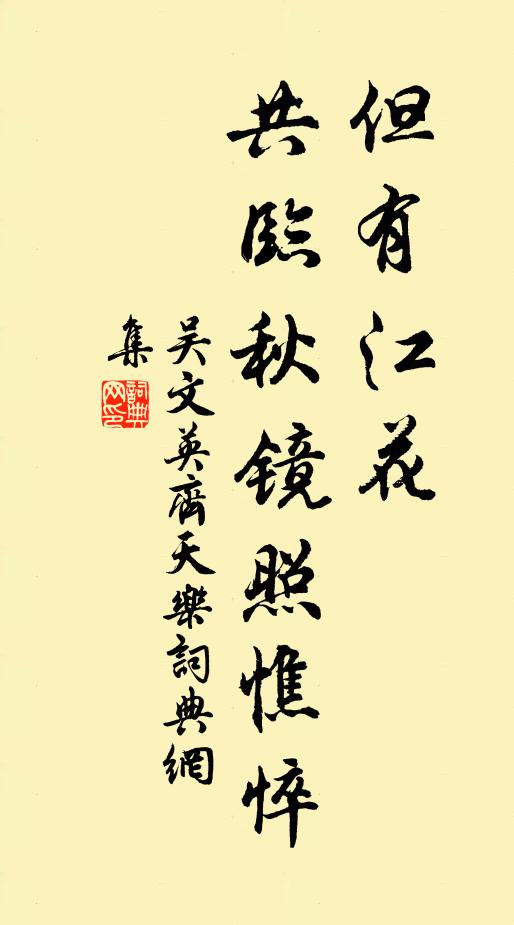 但有江花
共臨秋镜照憔悴
吴文英齊天樂詞典網
集
詞典网印